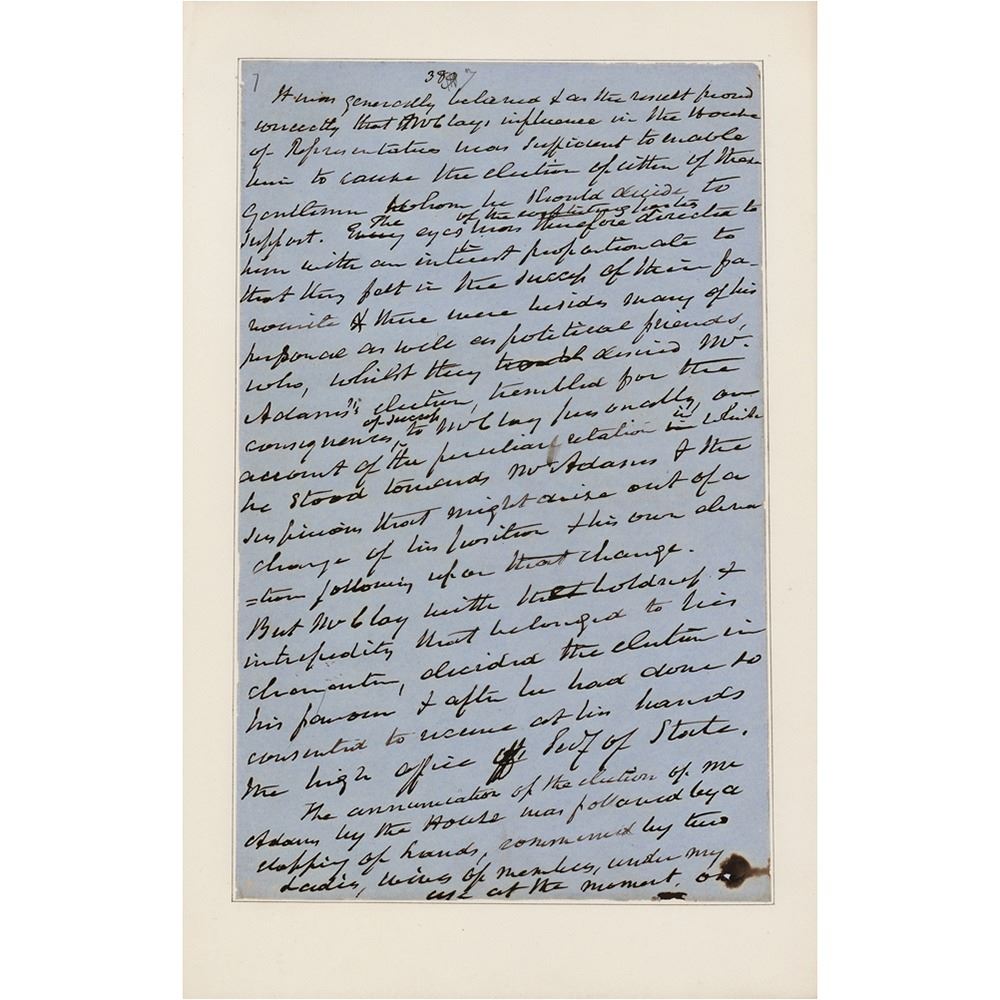 7
38
It was generally believed & as the result proved
correctly that Mr Clays influence in the House
of Representatives was sufficient to enable
him to cause the election of either of these
gentlemen whom he should decide to
The of the conflicting parties
support. Every eyes was therefore directed to
him with an interest proportionate to
that they felt in the success of their fa-
vourite & there were besides many of his
personal as well as political friends,
who, whilst they desired Mr.
Adams's election, trembled for the
of success
consequences, to Mr Clay personally, on
account of the peculiar relation in which
he stood towards Mr Adams & the
suspicions that might arise out of a
change of his position & his own eleva
=tion following upon that change.
But Mr Clay with that boldness &
intrepidity that belonged to his
character, decided the election in
his favour & after he had done so
consented to receive at his hands
the high office of Secy of State.
The annunciation of the election of Mr
Adams by the House was followed by a
clapping of hands, commenced by two
Ladies, wives of members, under my
eye at the moment. on